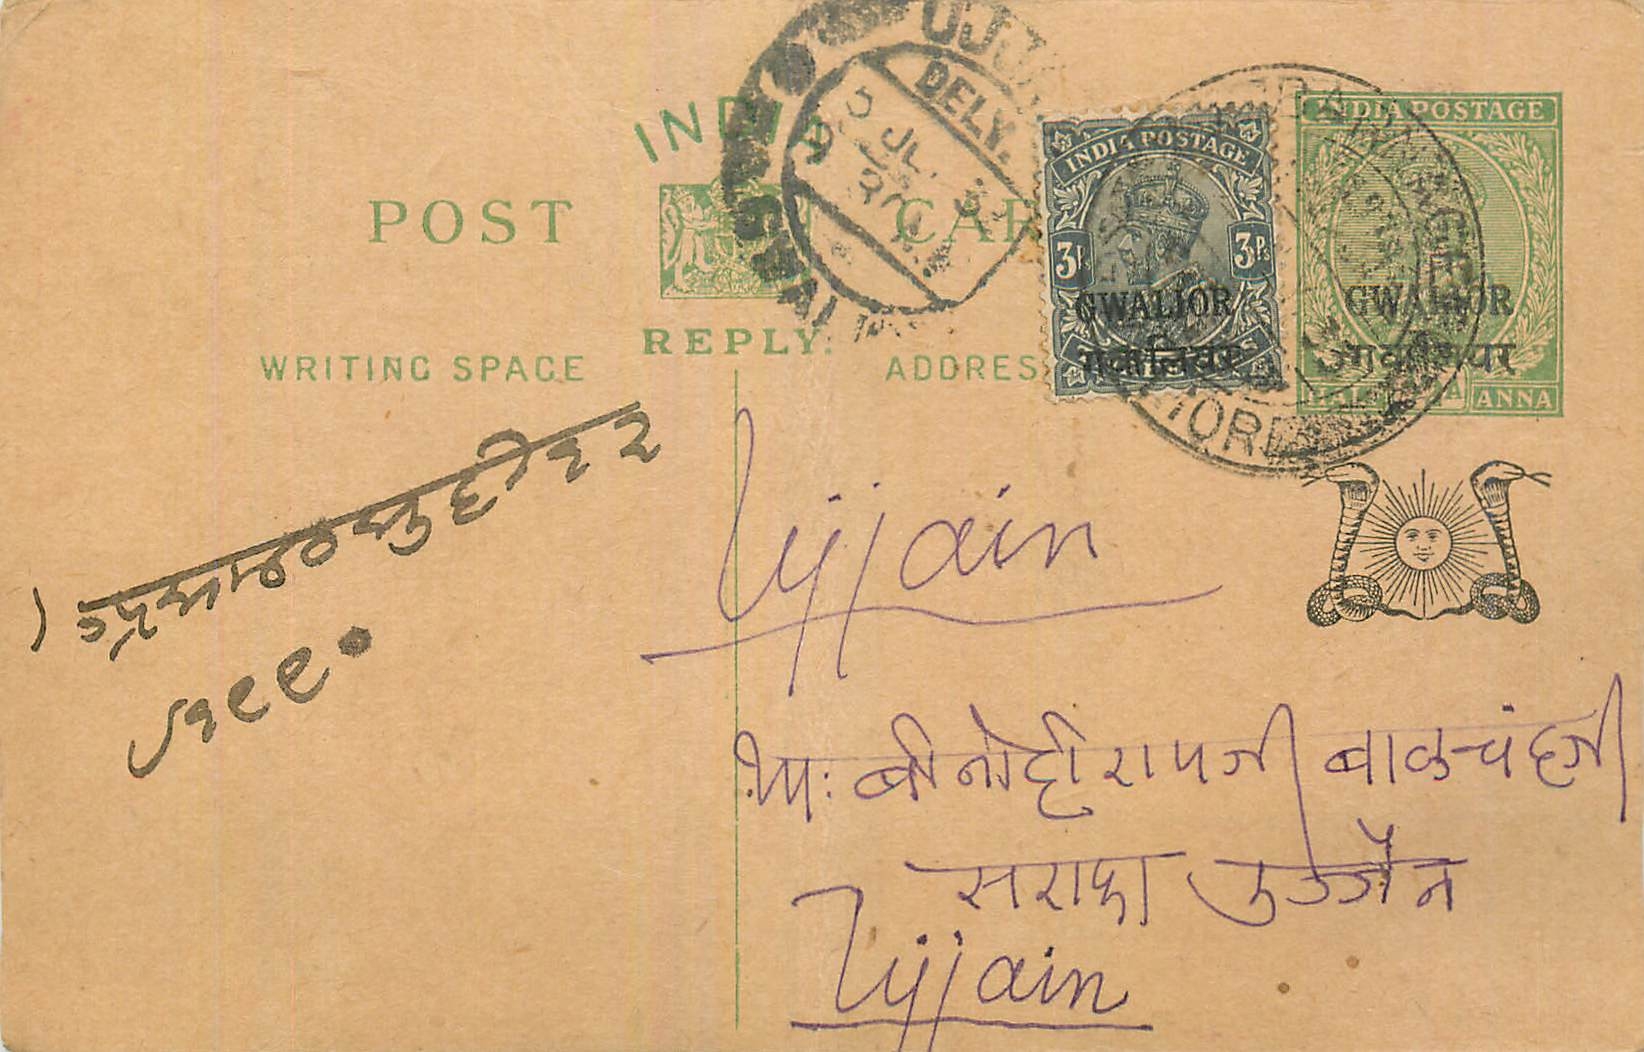 INDIA
POST CARD
REPLY.
WRITING SPACE
ADDRESS
UJJAIN
DELY.
JL.
INDIA POSTAGE
3Ps 3Ps
GWALIOR
गवालियर
INDIA POSTAGE
GWALIOR
गवालियर
HALF ANNA
MORENA
Ujjain
बीनोदीरामजी बालचंदजी
सराफा उज्जैन
Ujjain
१९९०